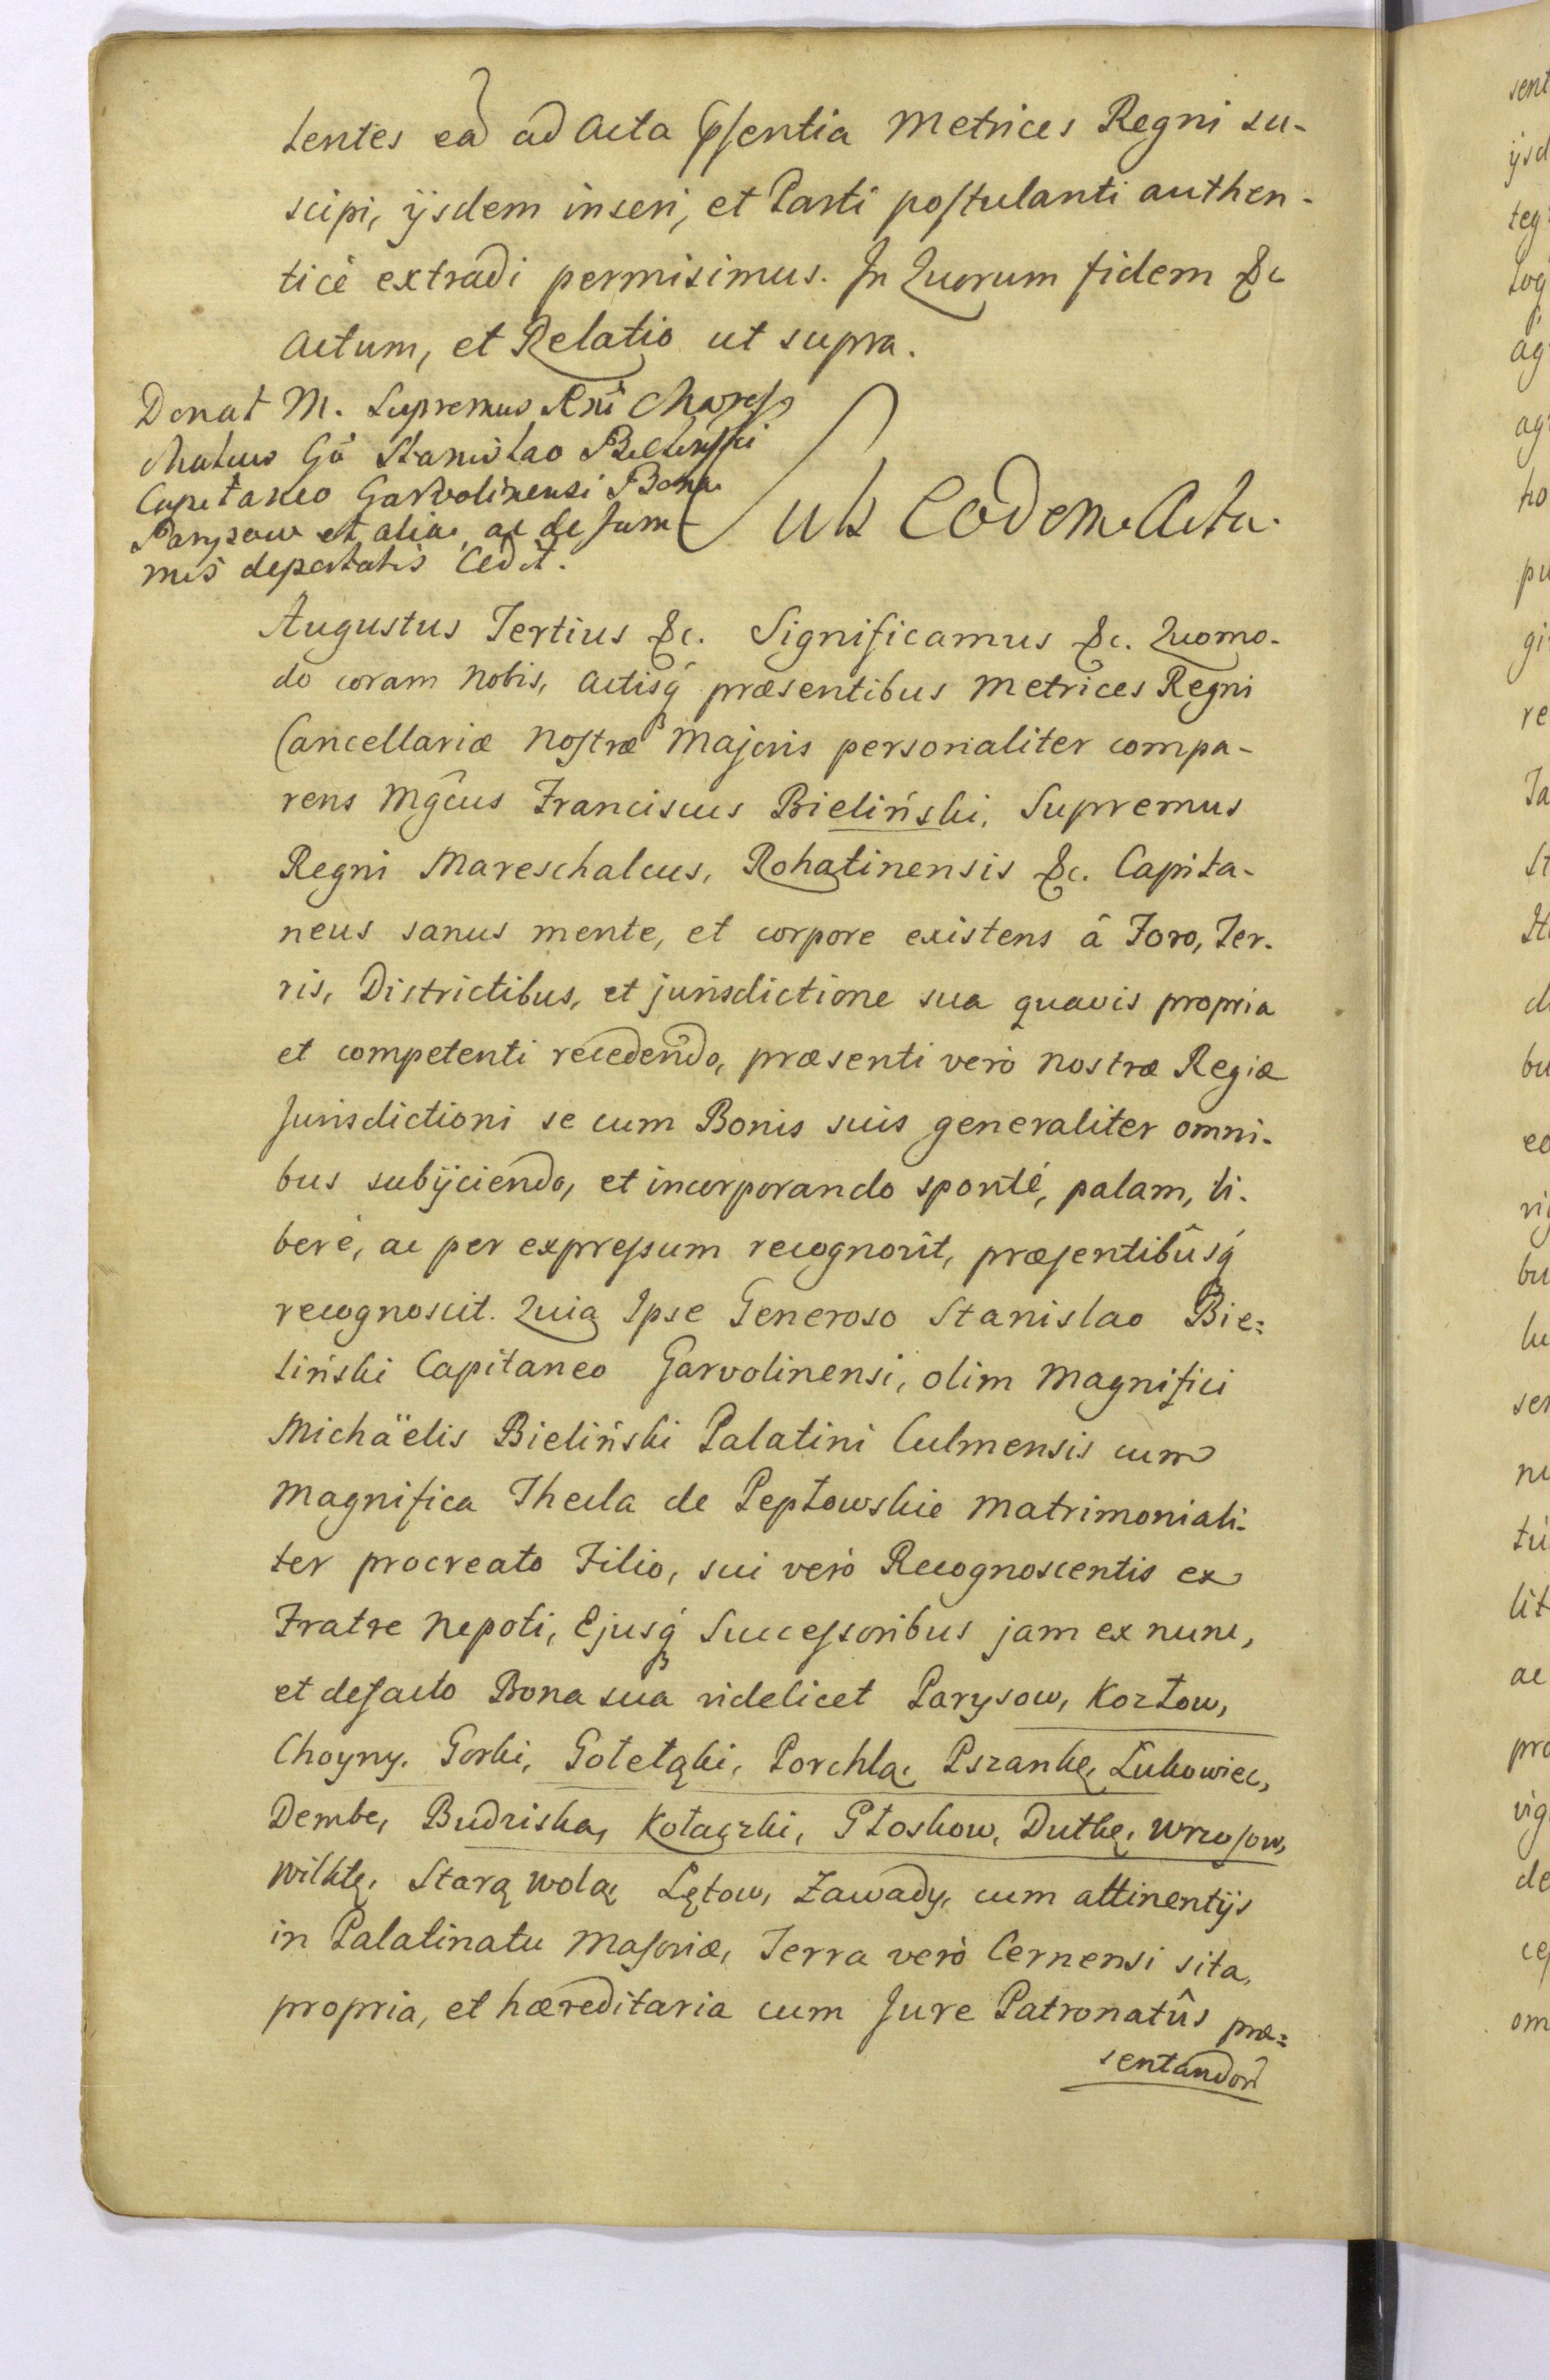 tentes ea ad Acta p̃sentia Metrices Regni su-
scipi, ijsdem inseri, et Parti postulanti authen-
ticè extradi permisimus. In Quorum fidem &c
Actum, et Relatio ut supra.
Donat M. Supremus Rni Mares
chalcus Gō Stanislao Bielinski
Capitaneo Garvolinensi Bona
Parysow et alia, ac de sum
mis deportatis Cedit.
Sub Eodem Actu.
Augustus Tertius &c. Significamus &c. Quomo-
do coram Nobis, Actisq́ præsentibus Metrices Regni
Cancellariæ Nostræ Majoris personaliter compa-
rens Mgcûs Franciscus Bieliński, Supremus
Regni Mareschalcus, Rohatinensis &c. Capita-
neus sanus mente, et corpore existens â Foro, Ter-
ris, Districtibus, et jurisdictione sua quavis propria
et competenti recedendo, præsenti verò Nostræ Regiæ
Jurisdictioni se cum Bonis suis generaliter omni-
bus subijciendo, et incorporando sponté, palam, li-
berè, ac per expressum recognovît, præsentibûsq́
recognoscit. Quia Ipse Generoso Stanislao Bie=
liński Capitaneo Garvolinensi, olim Magnifici
Michäelis Bieliński Palatini Culmensis cum
Magnifica Thecla de Pepłowskie Matrimoniali-
ter procreato Filio, sui verò Recognoscentis ex
Fratre Nepoti, Ejusq́ Successoribus jam ex nunc,
et defacto Bona sua videlicet Parysow, Kozłow,
Choyny, Gorki, Gołełąki, Porchlą, Pszankę, Łukowiec,
Dembe, Budziska, Kołaczki, Płoskow, Dutkę, Wrzosow,
Wilktę, Starą Wolą, Łętow, Zawady, cum attinentijs
in Palatinatu Masoviæ, Terra verò Cernensi sita,
propria, et hæreditaria cum Jure Patronatûs præ=
sentandor̃